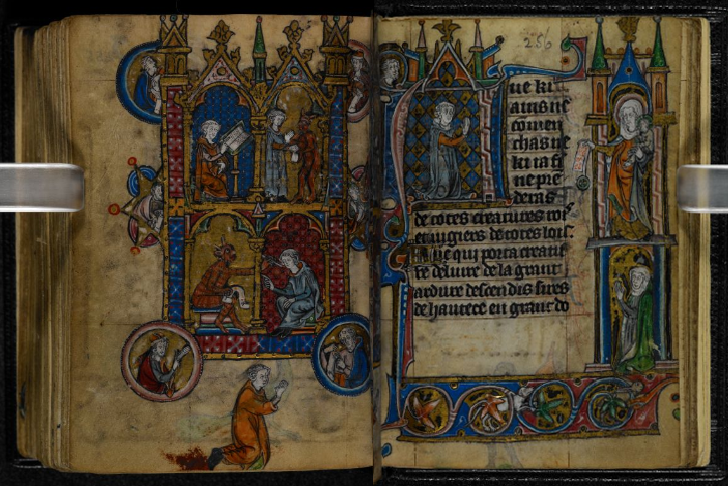 256
ue ki
ains ne
cōmen
chas ne
ki ta fi
ne pre
deras
de totes creatures rois
et iugiers de totes lois.
Aue qui porta creau
re deliure de la grant
ardure descendis sires
de hautece en grant do